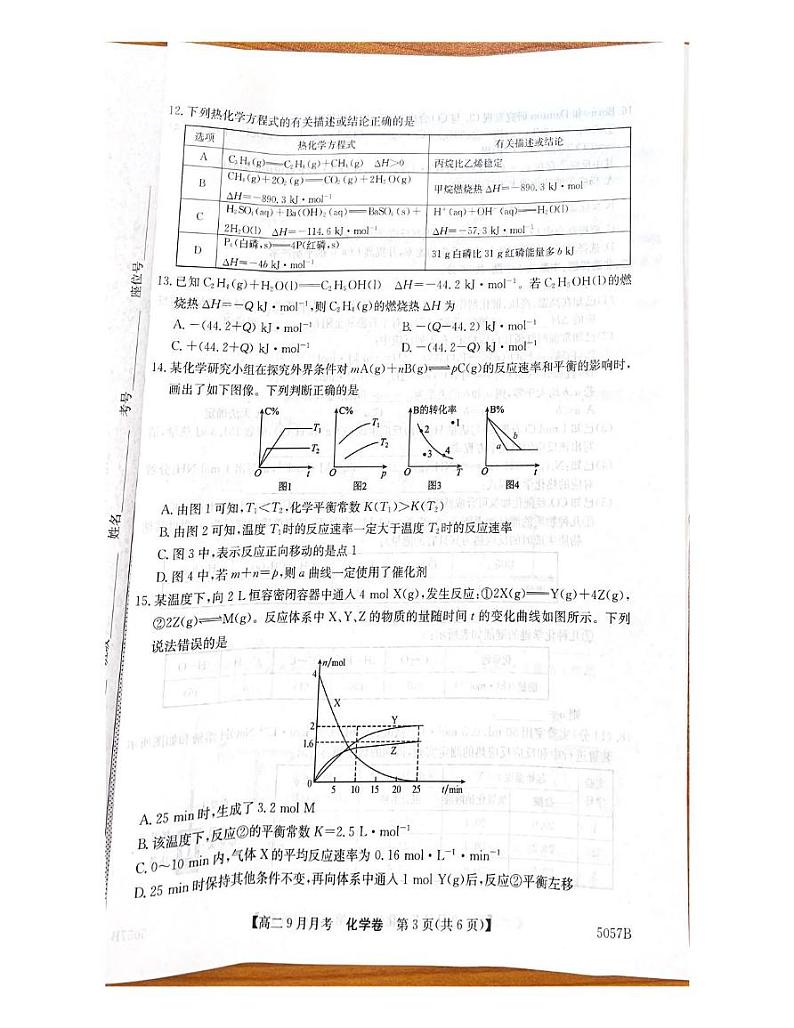 12.下列热化学方程式的有关描述或结论正确的是
选项 热化学方程式 有关描述或结论
A C₃H₈(g)══C₂H₄(g)+CH₄(g) ΔH>0 丙烷比乙烯稳定
B CH₄(g)+2O₂(g)══CO₂(g)+2H₂O(g)
ΔH=-890.3 kJ·mol⁻¹ 甲烷燃烧热 ΔH=-890.3 kJ·mol⁻¹
C H₂SO₄(aq)+Ba(OH)₂(aq)══BaSO₄(s)+
2H₂O(l) ΔH=-114.6 kJ·mol⁻¹ H⁺(aq)+OH⁻(aq)══H₂O(l)
ΔH=-57.3 kJ·mol⁻¹
D P₄(白磷,s)══4P(红磷,s)
ΔH=-4b kJ·mol⁻¹ 31 g白磷比31 g红磷能量多b kJ
13.已知C₂H₄(g)+H₂O(l)══C₂H₅OH(l) ΔH=-44.2 kJ·mol⁻¹。若C₂H₅OH(l)的燃
烧热ΔH=-Q kJ·mol⁻¹,则C₂H₄(g)的燃烧热ΔH为
A.-(44.2+Q) kJ·mol⁻¹ B.-(Q-44.2) kJ·mol⁻¹
C.+(44.2+Q) kJ·mol⁻¹ D.-(44.2-Q) kJ·mol⁻¹
14.某化学研究小组在探究外界条件对mA(g)+nB(g)⇌pC(g)的反应速率和平衡的影响时,
画出了如下图像。下列判断正确的是
C% T₁ T₂ O t 图1
C% T₁ T₂ O p 图2
B的转化率 1 2 3 4 O T 图3
B% a b O t 图4
A.由图1可知,T₁<T₂,化学平衡常数K(T₁)>K(T₂)
B.由图2可知,温度T₁时的反应速率一定大于温度T₂时的反应速率
C.图3中,表示反应正向移动的是点1
D.图4中,若m+n=p,则a曲线一定使用了催化剂
15.某温度下,向2 L恒容密闭容器中通入4 mol X(g),发生反应:①2X(g)══Y(g)+4Z(g),
②2Z(g)⇌M(g)。反应体系中X、Y、Z的物质的量随时间t的变化曲线如图所示。下列
说法错误的是
n/mol
4
X
2
Y
1.6
Z
0 5 10 15 20 25 t/min
A.25 min时,生成了3.2 mol M
B.该温度下,反应②的平衡常数K=2.5 L·mol⁻¹
C.0~10 min内,气体X的平均反应速率为0.16 mol·L⁻¹·min⁻¹
D.25 min时保持其他条件不变,再向体系中通入1 mol Y(g)后,反应②平衡左移
【高二9月月考 化学卷 第3页(共6页)】
5057B
座位号
考号
姓名